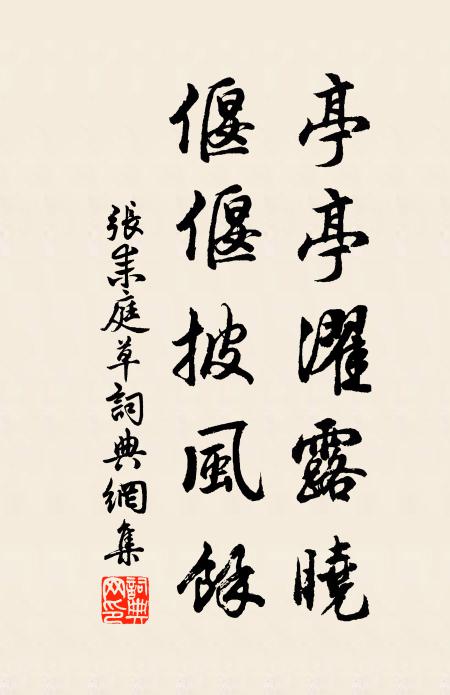 亭亭濯露曉
偃偃披風餘
張耒庭草詞典網集
詞典網印